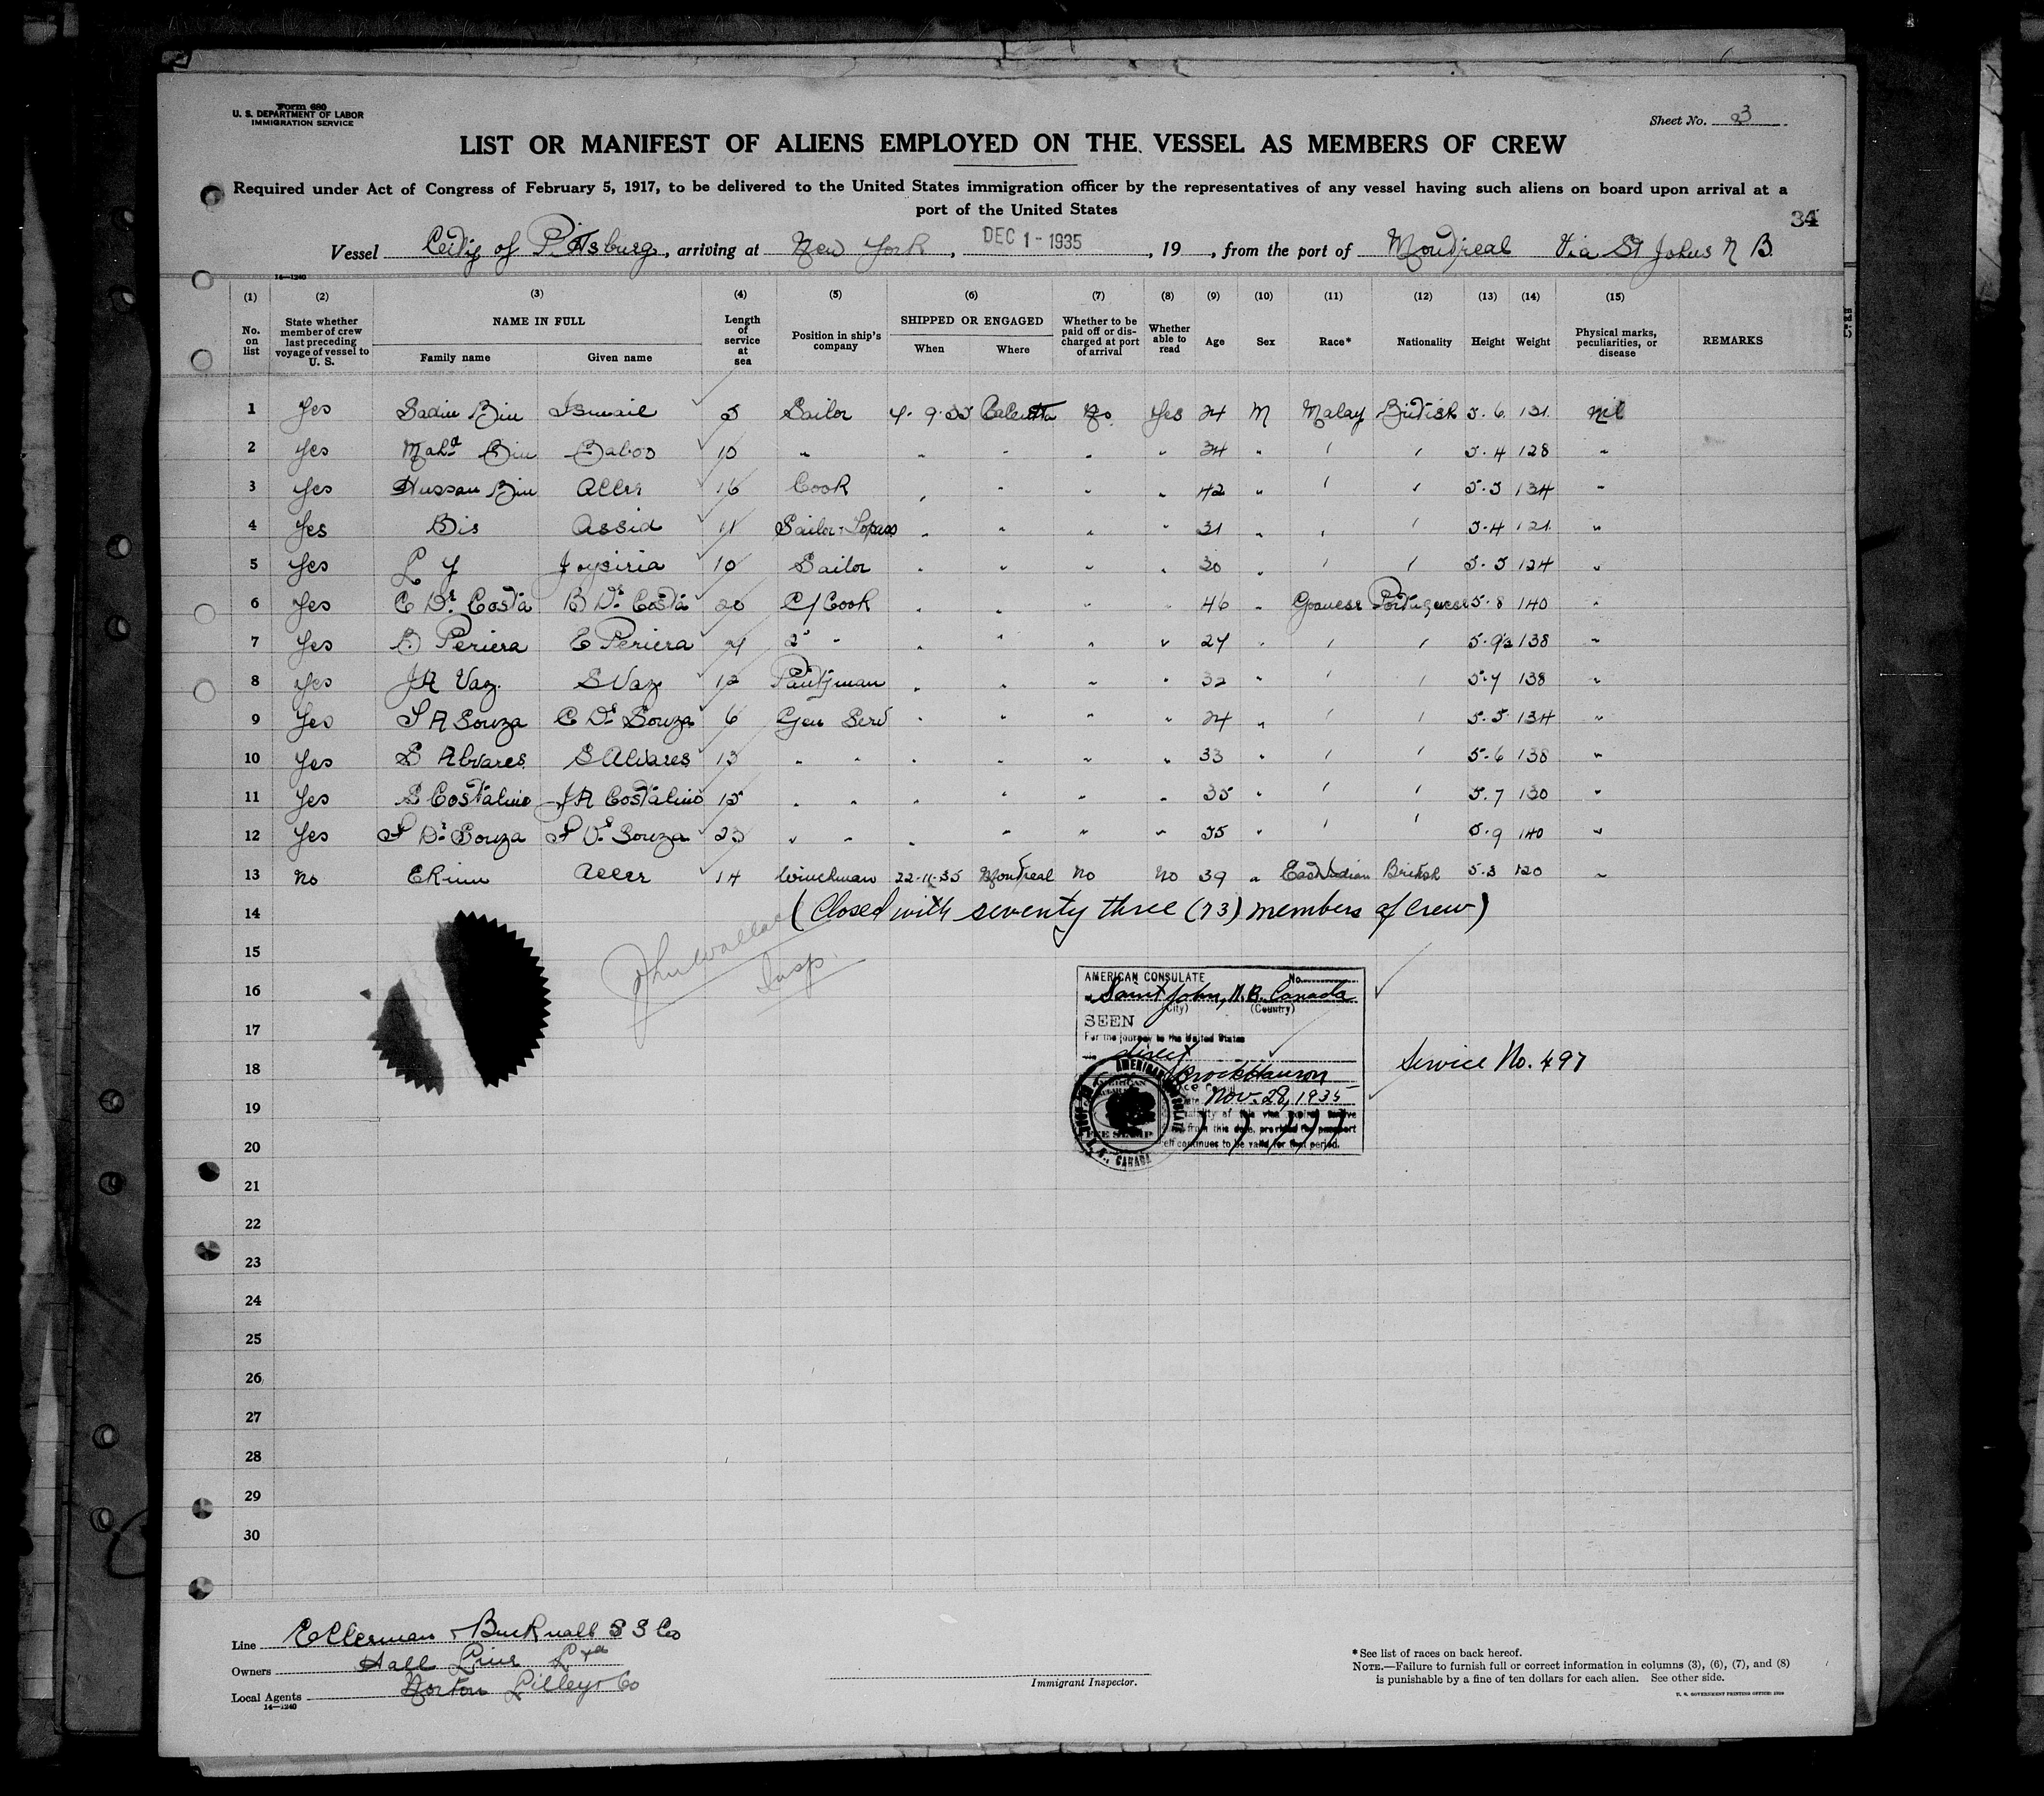 Form 680
U. S. DEPARTMENT OF LABOR
IMMIGRATION SERVICE
Sheet No. 3
LIST OR MANIFEST OF ALIENS EMPLOYED ON THE VESSEL AS MEMBERS OF CREW
Required under Act of Congress of February 5, 1917, to be delivered to the United States immigration officer by the representatives of any vessel having such aliens on board upon arrival at a
port of the United States
34
Vessel City of Pittsburg, arriving at New York, DEC 1 - 1935, 19 , from the port of Montreal Via St Johns N B.
14—1240
(1) (2) (3) (4) (5) (6) (7) (8) (9) (10) (11) (12) (13) (14) (15)
No. on list
State whether member of crew last preceding voyage of vessel to U. S.
NAME IN FULL
Family name Given name
Length of service at sea
Position in ship's company
SHIPPED OR ENGAGED
When Where
Whether to be paid off or discharged at port of arrival
Whether able to read
Age Sex Race* Nationality Height Weight
Physical marks, peculiarities, or disease
REMARKS
1 Yes Sadin Bin Ismail 5 Sailor 4. 9. 35 Calcutta No Yes 24 M Malay British 5. 6 131 nil
2 Yes Mahd Bin Baboo 10 " " " " " 34 " " " 5. 4 128 "
3 Yes Hussan Bin Aller 16 Cook " " " " 42 " " " 5. 5 134 "
4 Yes Bis Assid 11 Sailor " " " " 31 " " " 5. 4 121 "
5 Yes L Y Joysiria 10 Sailor " " " " 30 " " " 5. 5 124 "
6 Yes C Ds Costa B Ds Costa 20 C/Cook " " " " 46 " Goanese Portuguese 5. 8 140 "
7 Yes B Periera C Periera 4 2d " " " " " 27 " " " 5. 9½ 138 "
8 Yes J A Vaz. S Vaz 12 Pantjman " " " " 32 " " " 5. 7 138 "
9 Yes S A Souza C Ds Souza 6 Gen Serv " " " " 24 " " " 5. 5 134 "
10 Yes S Alvares S Alvares 13 " " " " " " 33 " " " 5. 6 138 "
11 Yes S Costalino J A Costalino 15 " " " " " " 35 " " " 5. 7 130 "
12 Yes S Ds Souza S Ds Souza 23 " " " " " " 35 " " " 5. 9 140 "
13 No Ekim Aller 14 Winchman 22-11-35 Montreal No No 39 " East Indian British 5. 3 120 "
14 (Closed with seventy three (73) members of crew)
15
John Wallac
Insp.
16
17
18
19
20
21
22
23
24
25
26
27
28
29
30
AMERICAN CONSULATE No.
at Saint John, N. B. Canada
(City) (Country)
SEEN
For the journey to the United States
via direct
Vice Consul
Date Nov. 28, 1935
Validity of this visa expires twelve
from this date, provided the passport
continues to be valid for that period.
AMERICAN CONSULATE ST. JOHN, N. B., CANADA
FEE STAMP
Service No. 497
Line Ellerman & Bucknall S S Co
Owners Hall Line Ltd
Local Agents Norton Lilley & Co
14—1240
Immigrant Inspector.
*See list of races on back hereof.
NOTE.—Failure to furnish full or correct information in columns (3), (6), (7), and (8)
is punishable by a fine of ten dollars for each alien. See other side.
U. S. GOVERNMENT PRINTING OFFICE